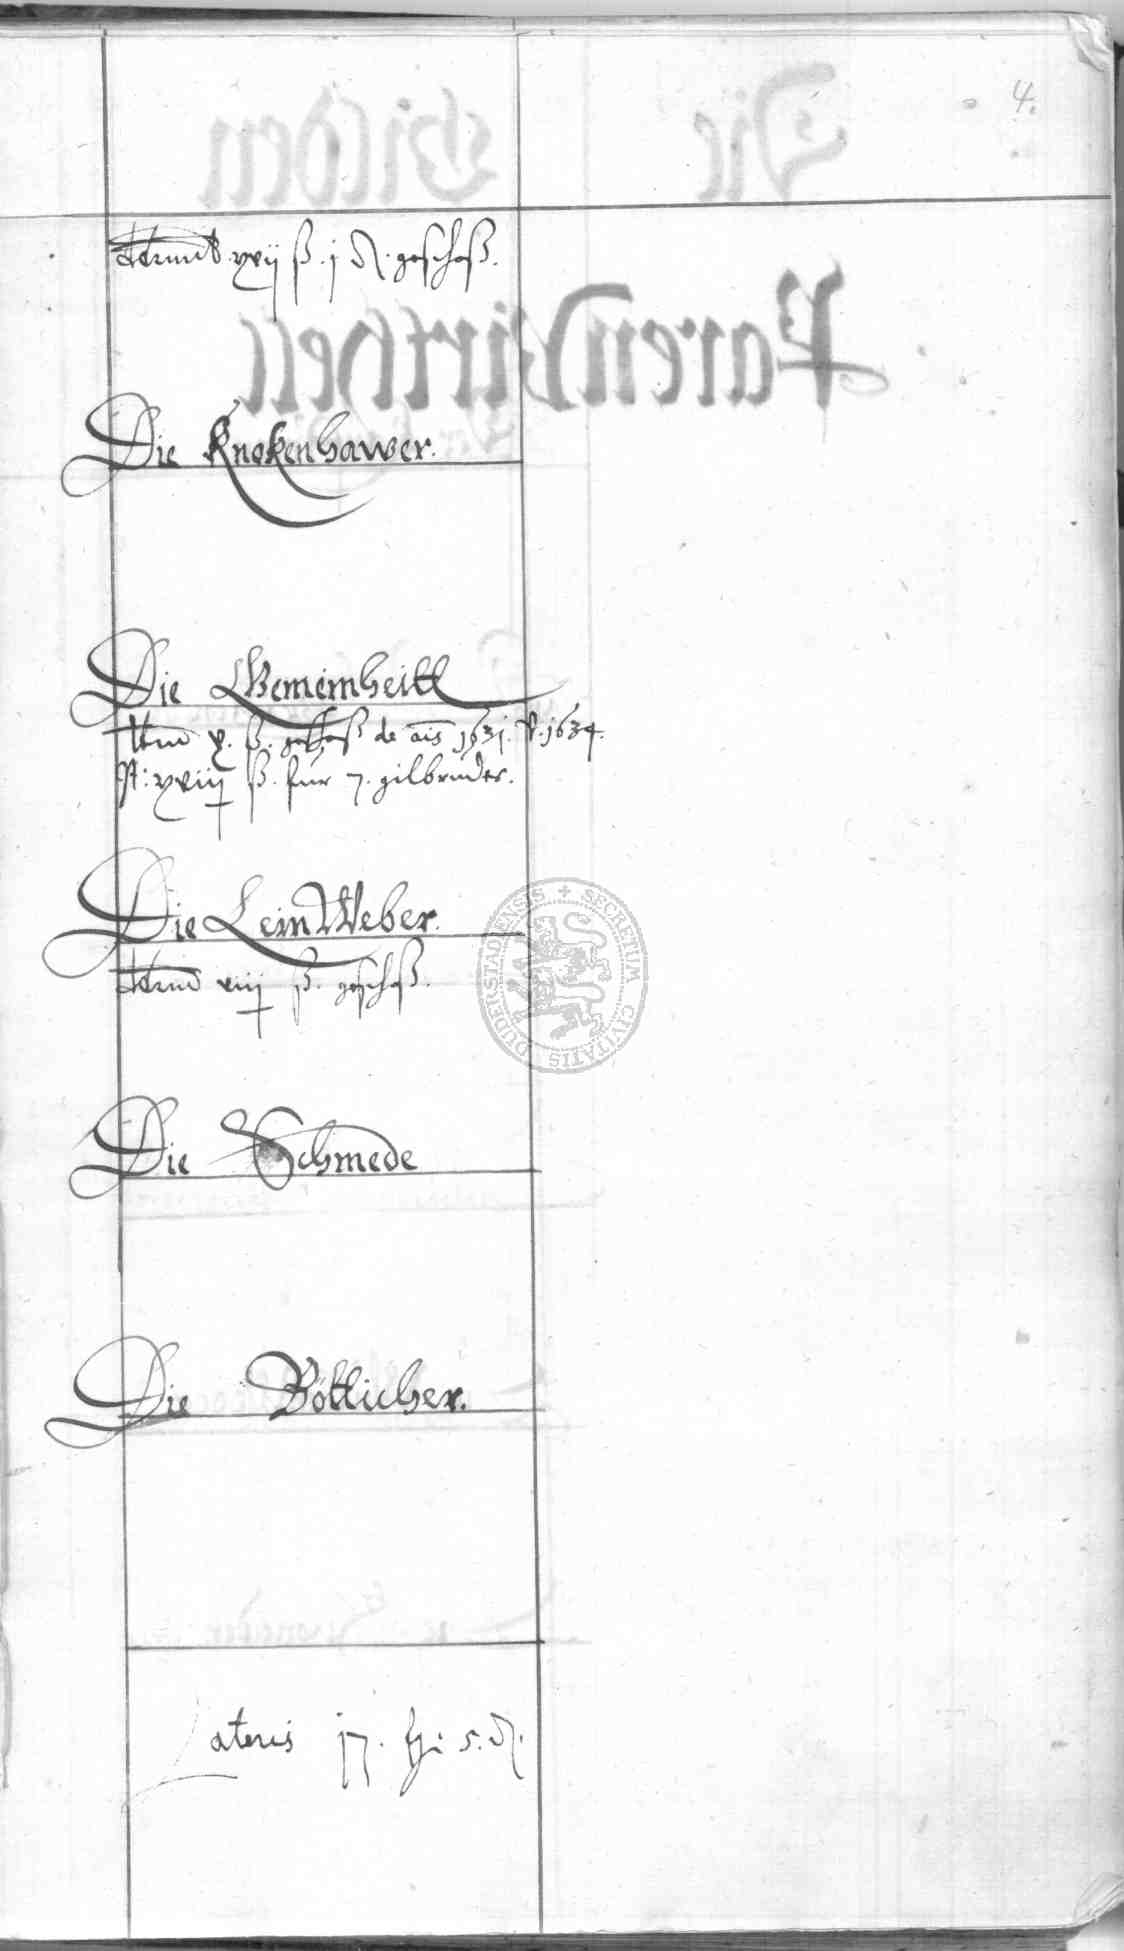 4.
xvij ß. j ₰. geschoß.
Die Knokenhawer.
Die Gemeinheitt
Item x. ß. geschoß de a͠is 1631. 1634.
xviij ß. fur 7. gilbruder.
Die LeinWeber.
viij ß. geschoß.
SECRETUM CIVITATIS DUDERSTADIENSIS
Die Schmede
Die Böttiche​r.
Lateris 17. 5. ₰.